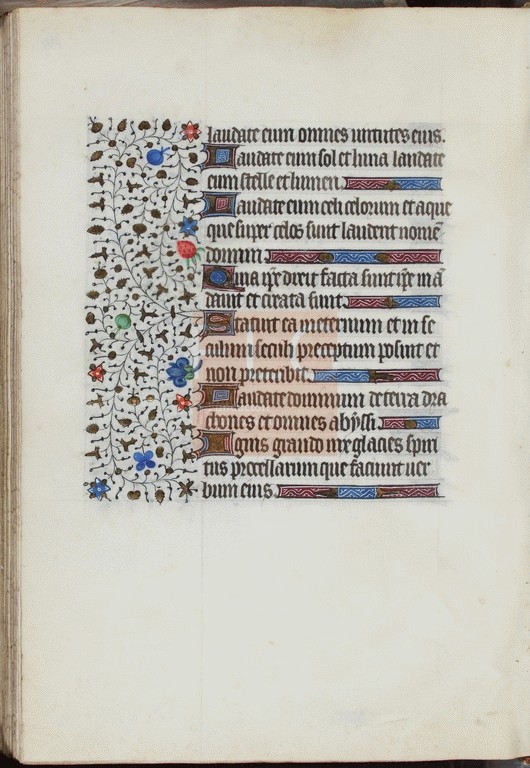 laudate eum omnes uirtutes eius.
Laudate eum sol et luna laudate
eum stelle et lumen.
Laudate eum celi celorum et aque
que super celos sunt laudent nomē
domini.
Quia ip̄e dixit et facta sunt ip̄e mā
dauit et creata sunt.
Statuit ea ineternum et in se
culum seculi preceptum posuit et
non preteribit.
Laudate dominum de terra dra
chones et omnes abyssi.
Ignis grando nix glacies spiri
tus procellarum que faciunt uer
bum eius.